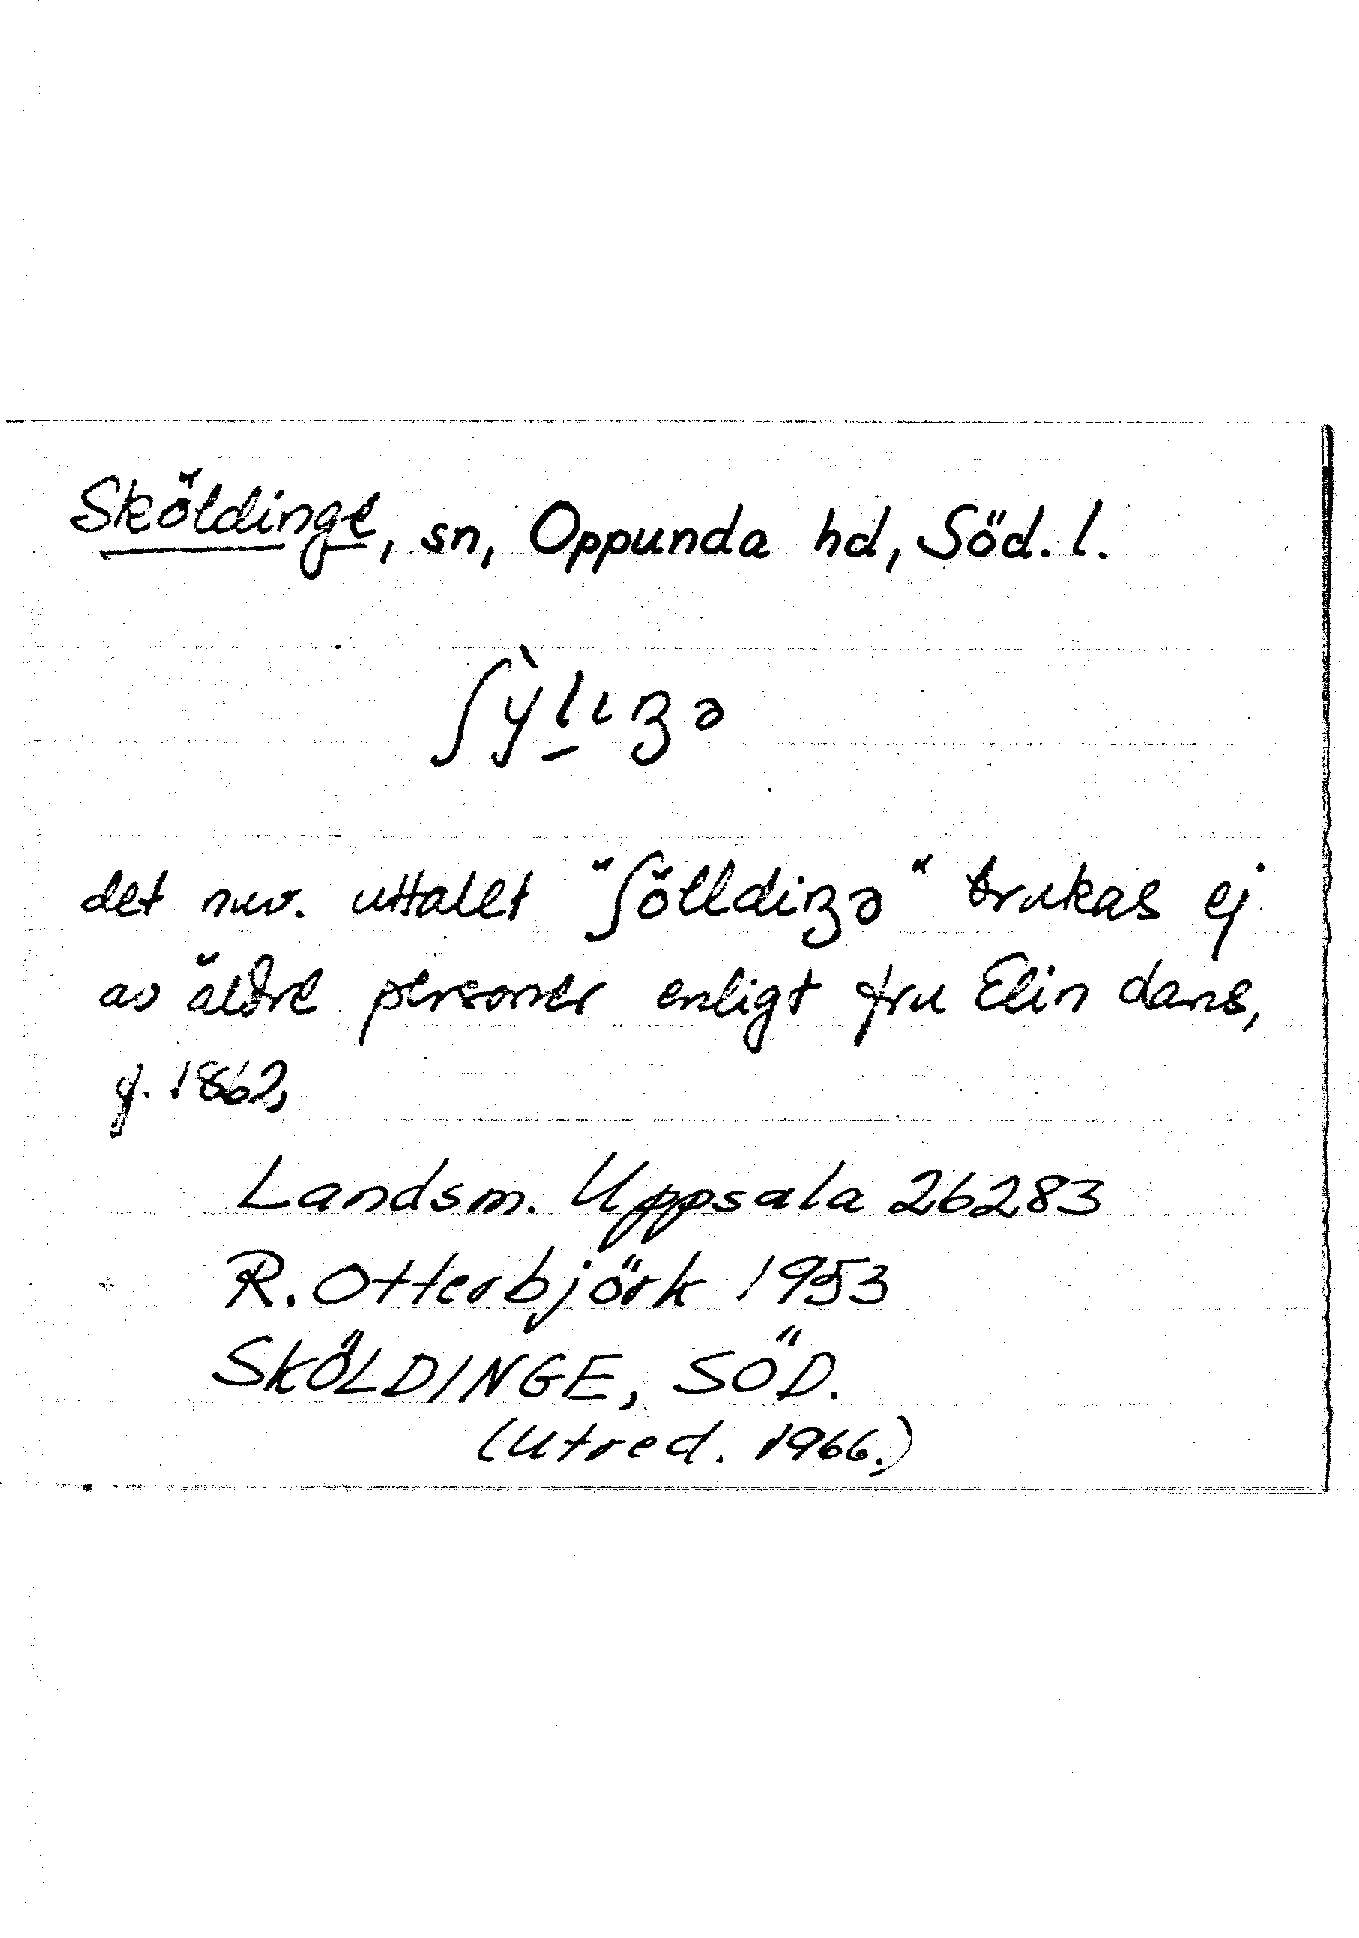 Sköldinge, sn, Oppunda hd, Söd. l.
ʃỳl̲ıŋə
det nuv. uttalet "ʃölldiŋə" brukas ej
av äldre personer enligt fru Elin dans,
f. 1862,
Landsm. Uppsala 26283
R. Otterbjörk 1953
SKÖLDINGE, SÖD.
(Utred. 1966.)